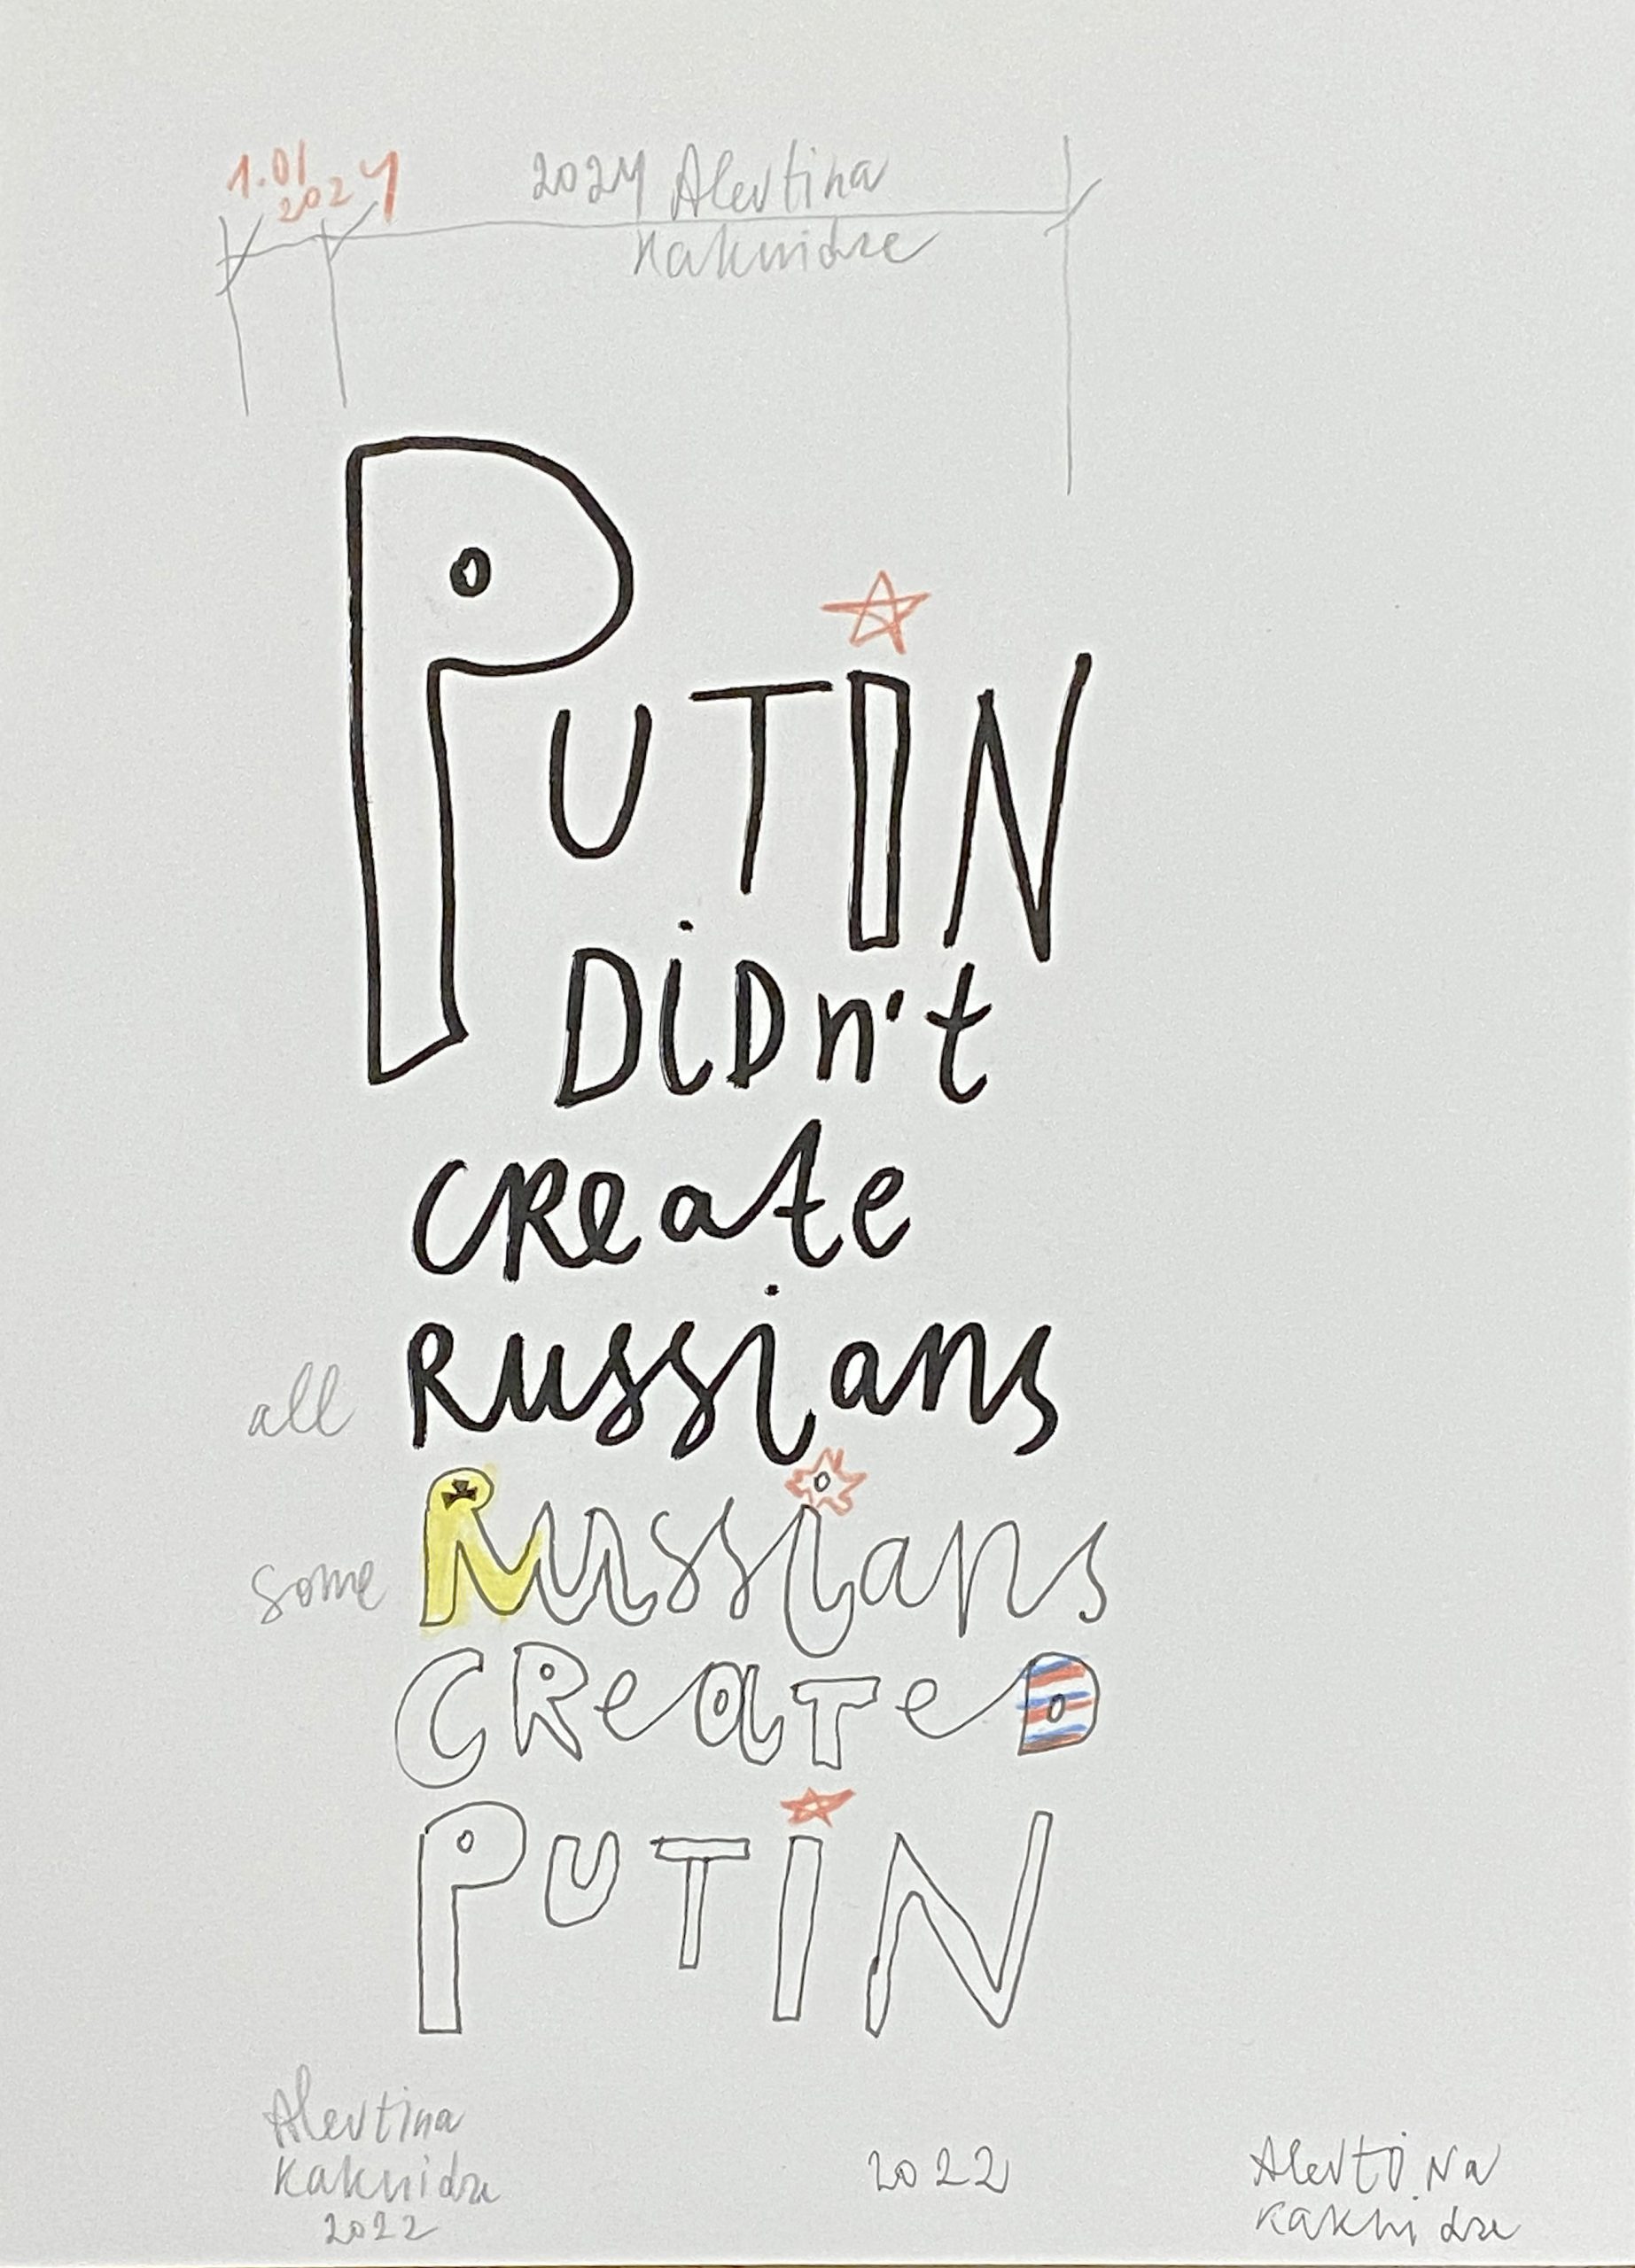 1.01
2024
2024 Alevtina
Kakhidze
PUTIN
DiDn't
CReate
all Russians
some Russians
CReateD
PUTiN
Alevtina
Kakhidze
2022
2022
Alevtina
Kakhidze